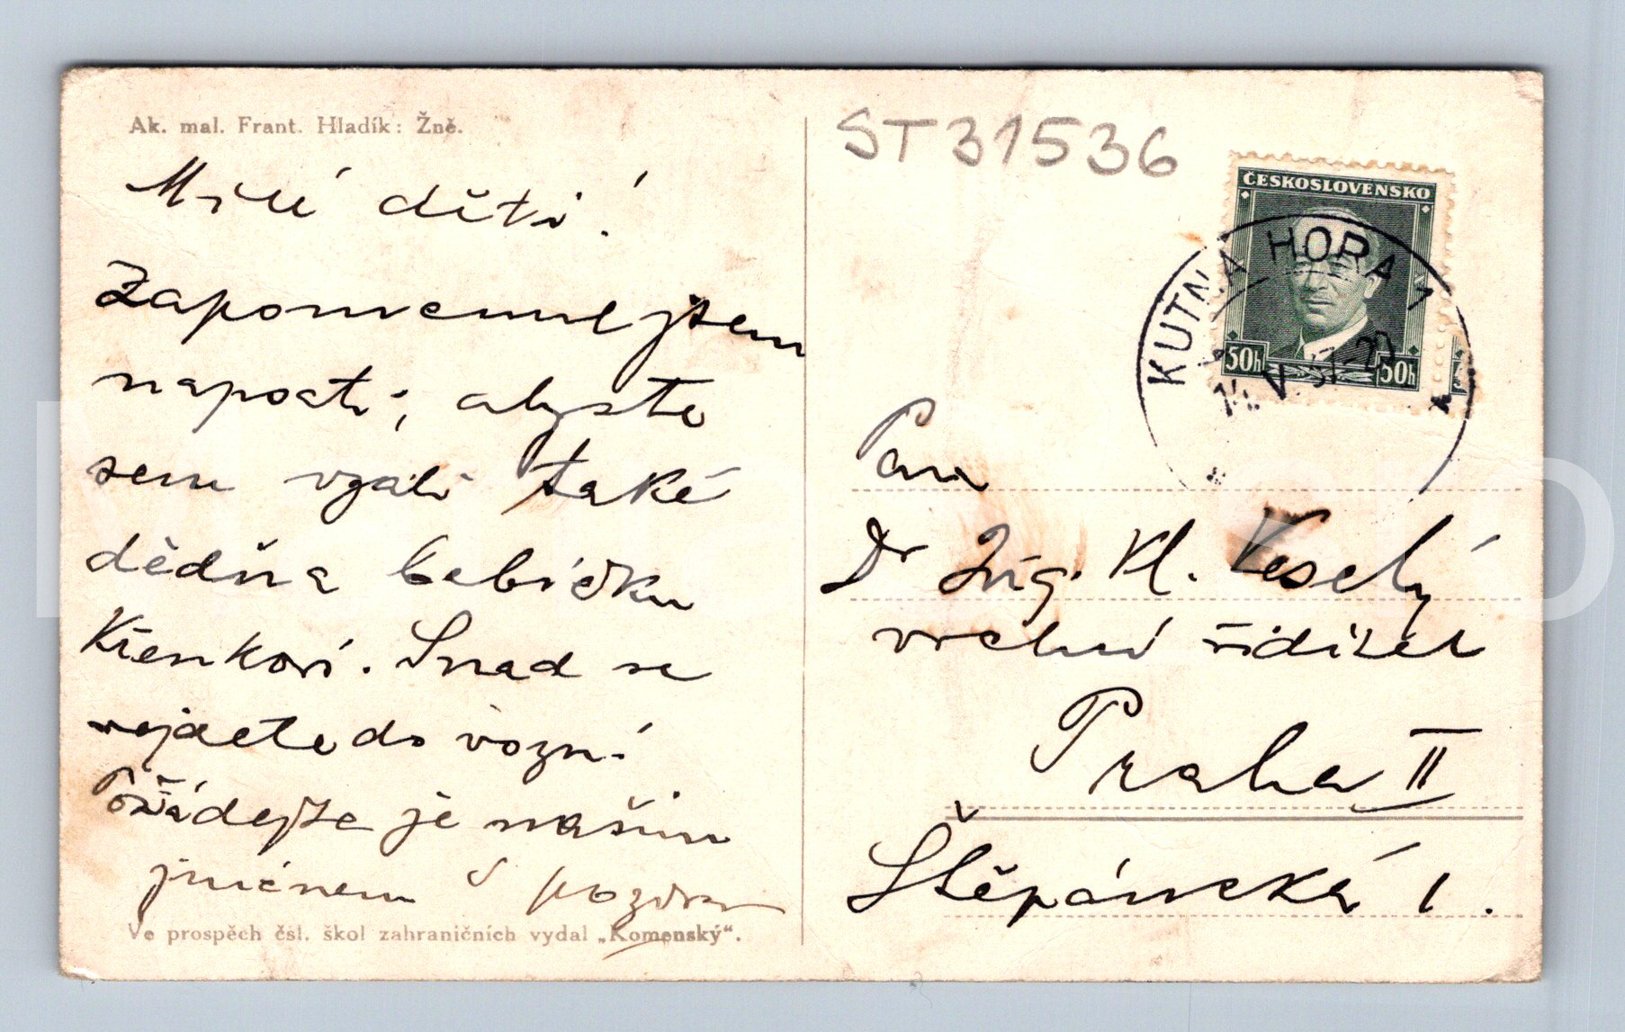 Ak. mal. Frant. Hladík: Žně.
Milé děti!
Zapomenul jsem
napsati, abyste
sem vzali také
dědu a babičku
Křenkovi. Snad se
vejdete do vozu!
Požádejte je našim
jménem
Ve prospěch čsl. škol zahraničních vydal „Komenský“.
ST31536
ČESKOSLOVENSKO
50h 50h
KUTNÁ HORA 1
14. V. 37-23
Pan
Dr Ing. Kl. Veselý
vrchní ředitel
Praha II
Štěpánská 1.